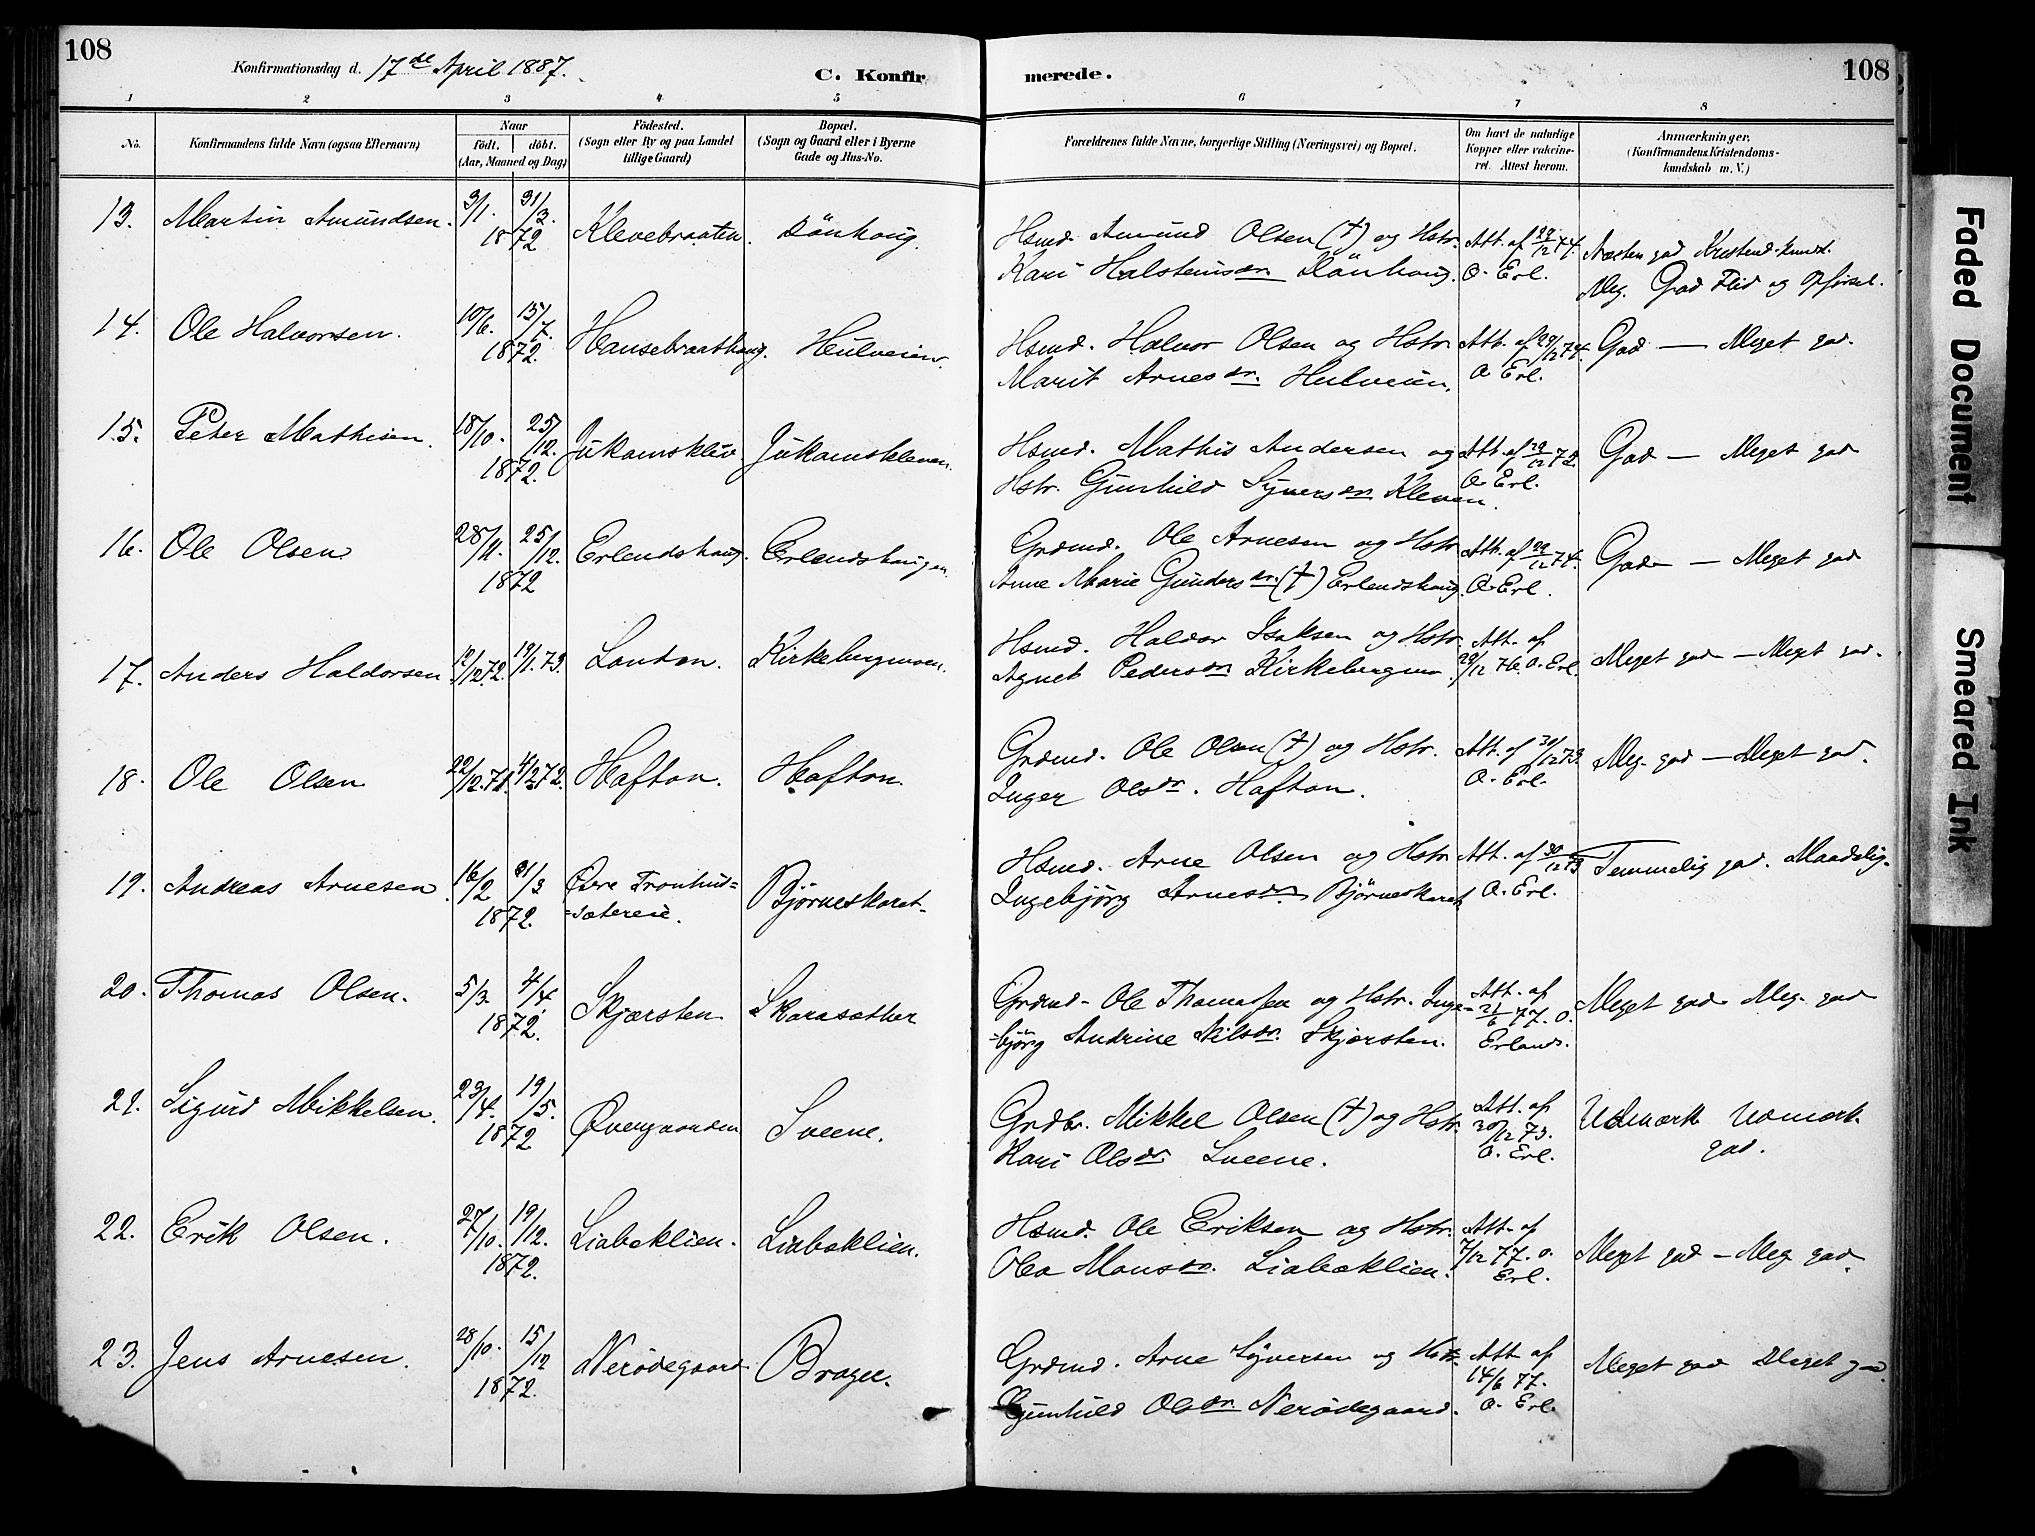 108
Konfirmationsdag d. 17de April 1887.
C. Konfir
merede.
108
1 2 3 4 5 6 7 8
No.
Konfirmandens fulde Navn (ogsaa Efternavn)
Naar
födt. döbt.
(Aar, Maaned og Dag)
Födested.
(Sogn eller By og paa Landet
tillige Gaard)
Bopæl.
(Sogn og Gaard eller i Byerne
Gade og Hus-No.
Forældrenes fulde Navne, borgerlige Stilling (Næringsvei) og Bopæl.
Om havt de naturlige
Kopper eller vakcine-
ret. Attest herom.
Anmærkninger.
(Konfirmandens Kristendoms-
kundskab m. V.)
13. Martin Amundsen. 3/1. 31/3. 1872 Klevebraaten. Rönhaug. Hsmd. Amund Olsen (†) og Hstr. Att. af 29/12 74. Næsten god Kristend.kundsk.
Kari Halstensdr. Rönhaug. O. Erl. Meg. God Flid og Opførsel.
14. Ole Halvorsen. 10/6. 15/7. 1872. Hansebraathaug. Hulveien. Hsmd. Halvor Olsen og Hstr. Att. af 29/12 74. God — Meget god.
Marit Arnesdr. Hulveien. O Erl.
15. Peter Mathisen. 18/10. 25/12. 1872. Jukamskleiv Jukamskleven. Hsmd. Mathis Andersen og Att. af 29/12 72. God — Meget god
Hstr. Gunhild Syversdr. Kleven. O. Erl.
16. Ole Olsen 28/11. 25/12. 1872 Erlendshaug. Erlendshaugen. Grdmd. Ole Arnesen og Hstr Att. af 29/12 74. God — Meget god
Anne Marie Gundersdr. (†) Erlendshaug. O. Erl.
17. Anders Haldorsen 12/12.72. 19/1.73. Lontan. Kirkebergmoen. Hsmd. Haldor Isaksen og Hstr. Att. af Meget god — Meget god.
Agnet Pedersdr Kirkebergmo. 29/12 76. O. Erl.
18. Ole Olsen 22/12.71. 4/2 72. Hafton. Hafton. Grdmd. Ole Olsen (†) og Hstr. Att. af 30/12 73. Meg. god — Meget god.
Inger Olsdr. Hafton. O. Erl.
19. Andreas Arnesen 16/2 31/3 1872. Øvre Tronhud= Bjørneskaret. Hsmd. Arne Olsen og Hstr Att. af 30/12 73 Temmelig god. Maadelig.
=sætereie. Ingebjörg Arnesdr. Bjørneskaret. O. Erl.
20. Thomas Olsen. 5/3. 4/4. 1872. Skjærsten Skarasæther Grdmd. Ole Thomassen og Hstr. Inge= Att. af Meget god. Meg. god
=björg Andrine Nilsdr. Skjærsten. 21/6 77. O. Erlands.
21. Sigurd Mikkelsen. 23/4. 19/5. 1872 Øvergaarden Sveene. Grdbr. Mikkel Olsen (†) og Hstr. Att. af Udmærk. Udmærk.
Kari Olsdr. Sveene. 30/12 73. O. Erl. god.
22. Erik Olsen. 27/10. 19/12. 1872. Liabæklien. Liabæklien. Hsmd. Ole Eriksen og Hstr. Att. af Meget god — Meg. god.
Olea Monsdr. Liabæklien. 7/12 77. O. Erl.
23. Jens Arnesen. 28/10. 15/12 1872. Nerødegaard Brager. Grdmd. Arne Syversen og Hstr. Att. af Meget god Meget god.
Gunhild Olsdr. Nerødegaard. 14/6 77. O. Erl.
Faded Document
Smeared Ink